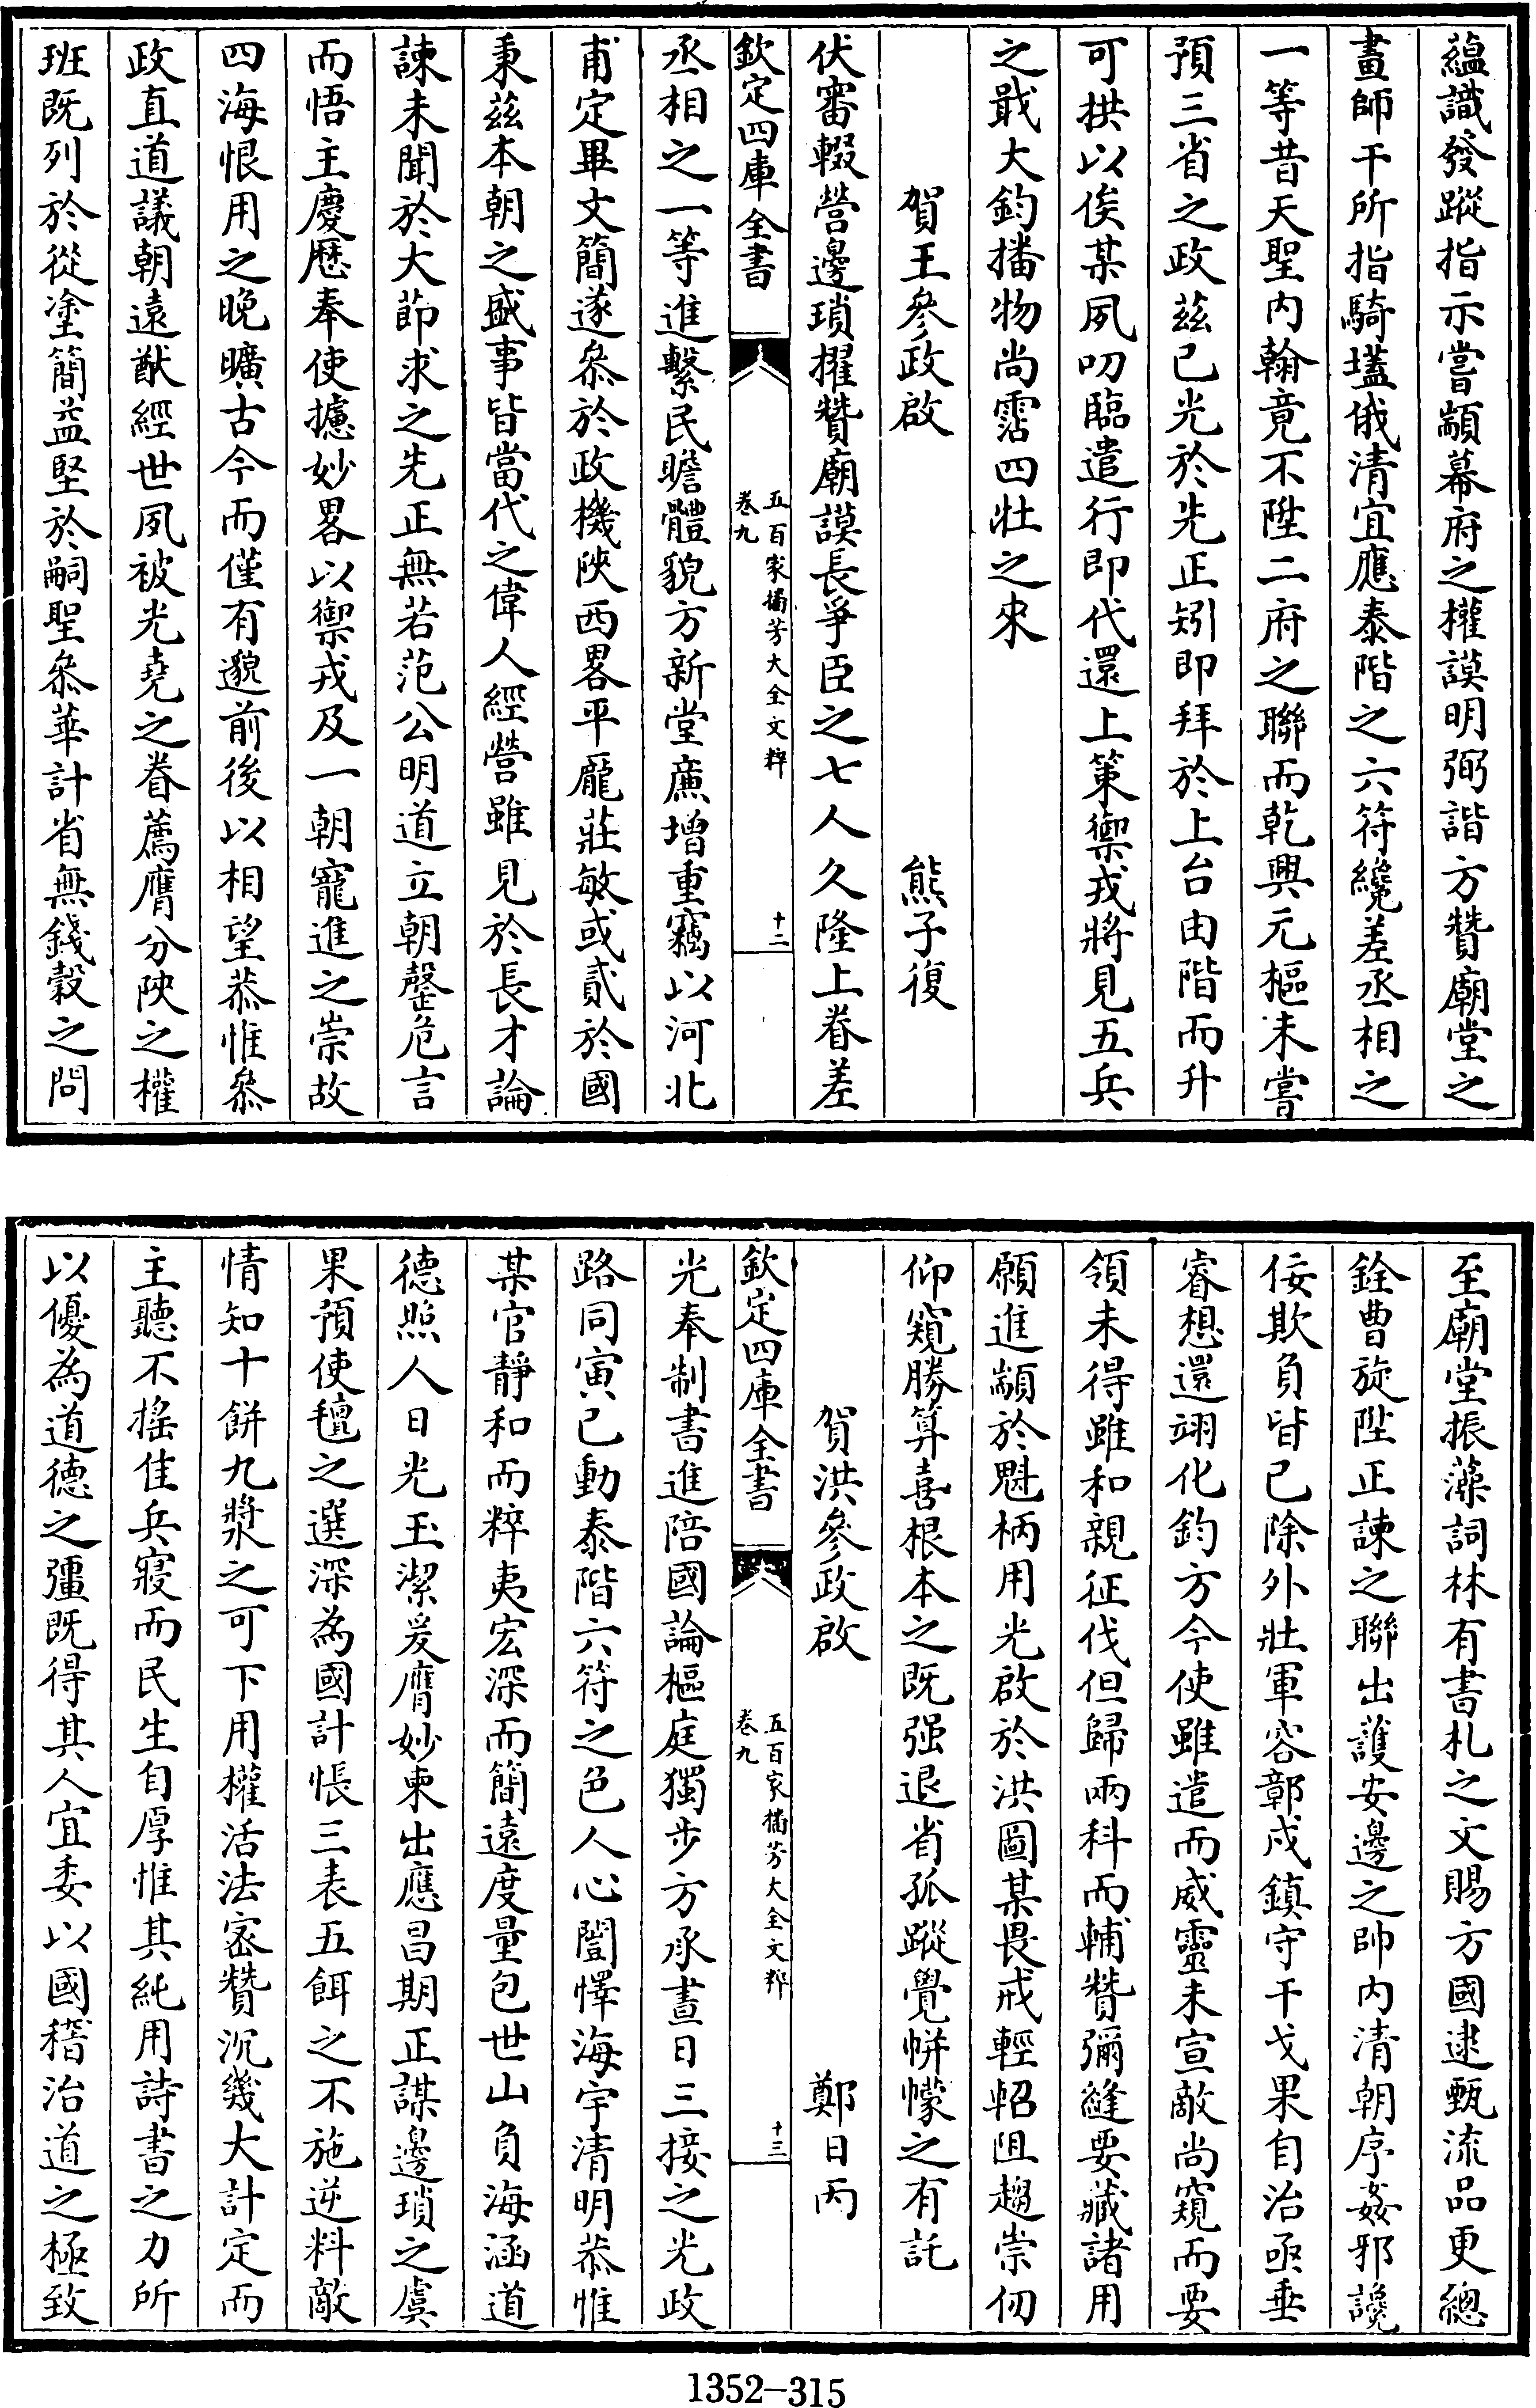 蘊識發蹤指示嘗顓幕府之權謨明弼諧方贊廟堂之
畫師干所指騎𡒉俄清宜應泰階之六符纔差丞相之
一等昔天聖内翰竟不陞二府之聯而乾興元樞未嘗
預三省之政兹已光於先正矧即拜於上台由階而升
可拱以俟某夙叨臨遣行即代還上策禦戎將見五兵
之戢大鈞播物尚霑四壯之來
賀王參政啟
熊子復
伏審輟營邊瑣擢贊廟謨長爭臣之七人久隆上眷差
欽定四庫全書
五百家播芳大全文粹
卷九
十二
丞相之一等進繫民瞻體貌方新堂廉增重竊以河北
甫定畢文簡遂叅於政機陜西畧平龎莊敏或貳於國
秉兹本朝之盛事皆當代之偉人經營雖見於長才論
諫未聞於大節求之先正無若范公明道立朝罄危言
而悟主慶厯奉使攄妙畧以禦戎及一朝寵進之崇故
四海恨用之晚曠古今而僅有邈前後以相望恭惟叅
政直道議朝遠猷經世夙被光堯之眷薦膺分陜之權
班既列於從塗簡益堅於嗣聖叅華計省無錢糓之問
至廟堂振藻詞林有書札之文賜方國逮甄流品更總
銓曹旋陞正諫之聯出護安邊之帥内清朝序姦邪讒
佞欺負皆已除外壯軍容鄣戍鎮守干戈果自治亟垂
睿想還翊化鈞方今使雖遣而威靈未宣敵尚窺而要
領未得雖和親征伐但歸兩科而輔贊彌縫要藏諸用
願進顓於魁柄用光啟於洪圖某畏戒輕軺阻趨崇仞
仰窺勝算喜根本之既强退省孤蹤覺帡幪之有託
賀洪參政啟
鄭日丙
欽定四庫全書
五百家播芳大全文粹
卷九
十三
光奉制書進陪國論樞庭獨步方承晝日三接之光政
路同寅已動泰階六符之色人心闓懌海宇清明恭惟
某官靜和而粹夷宏深而簡遠度量包世山負海涵道
德照人日光玉潔爰膺妙柬出應昌期正謀邊瑣之虞
果預使氊之選深為國計悵三表五餌之不施逆料敵
情知十餅九漿之可下用權活法宻贊沉幾大計定而
主聽不搖隹兵寢而民生自厚惟其純用詩書之力所
以優為道德之彊既得其人宜委以國稽治道之極致
1352-315